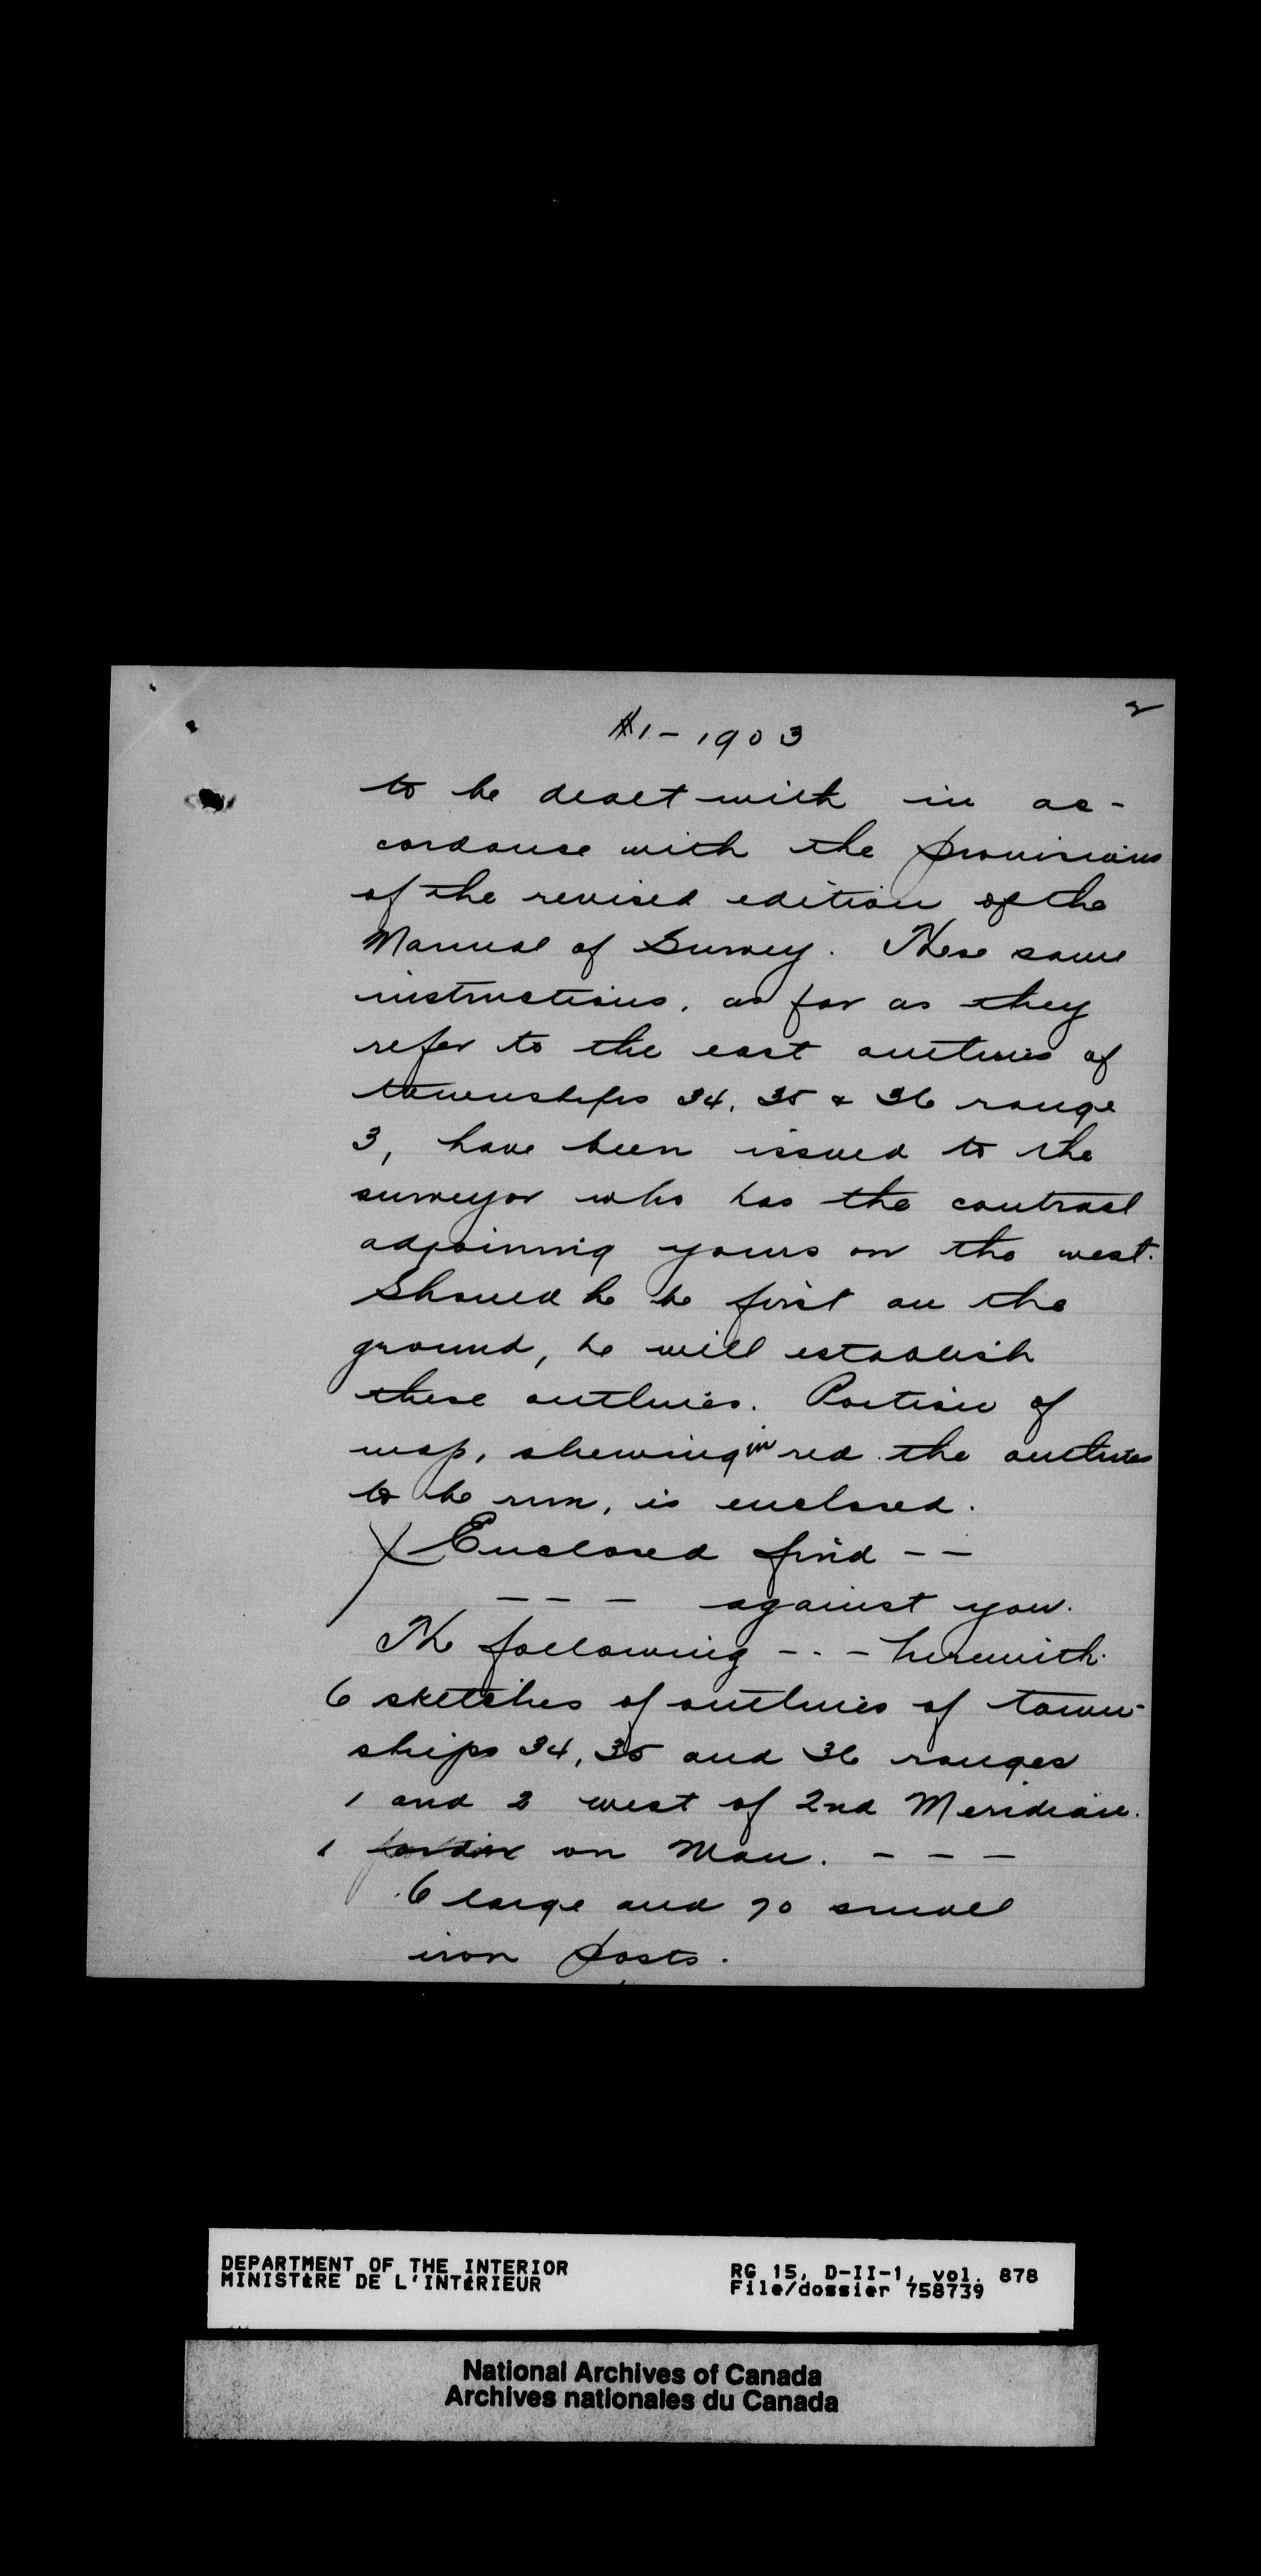 2
#1-1903
to be dealt with in ac-
cordance with the provisions
of the revised edition of the
Manual of Survey. These same
instructions, as far as they
refer to the east outlines of
townships 34, 35 & 36 range
3, have been issued to the
surveyor who has the contract
adjoining yours on the west.
Should he be first on the
ground, he will establish
these outlines. Portion of
map, shewing in red the outlines
to be run, is enclosed.
Enclosed find --
--- against you.
The following --- herewith.
6 sketches of outlines of town-
ships 34, 35 and 36 ranges
1 and 2 west of 2nd Meridian.
1 on Man. ---
6 large and 70 small
iron posts.
DEPARTMENT OF THE INTERIOR
MINISTÈRE DE L'INTÉRIEUR
RG 15, D-II-1, vol. 878
File/dossier 758739
National Archives of Canada
Archives nationales du Canada